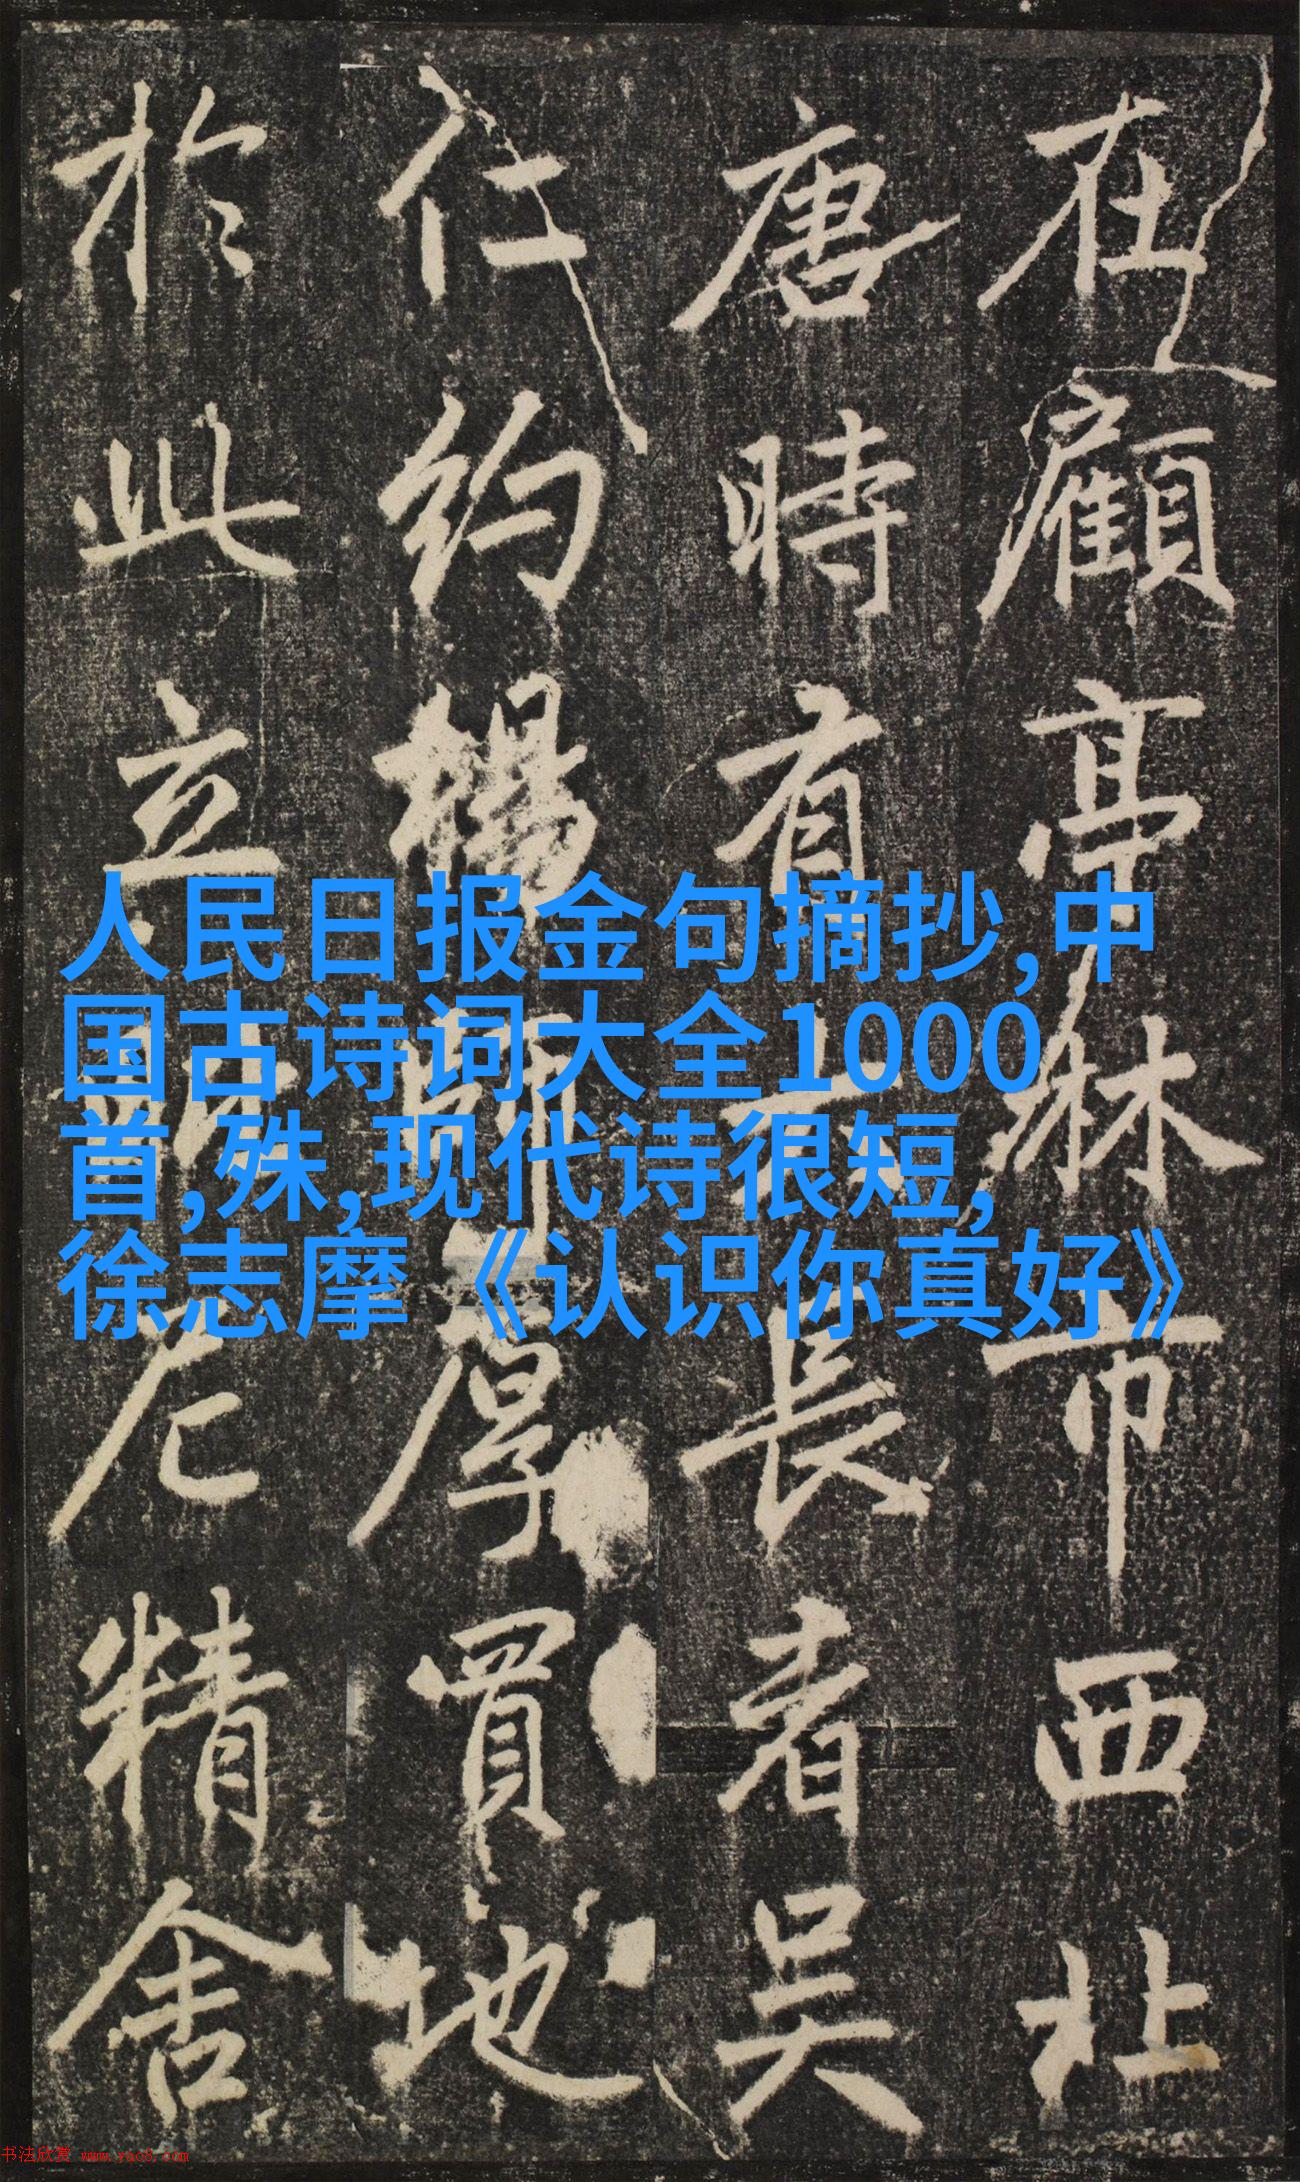 在顧亭林市西北
唐時有長者吳
仁約楊師厚買地
於此立尼精舍
人民日报金句摘抄,中
国古诗词大全1000
首,殊,现代诗很短,
徐志摩《认识你真好》
书法欣赏 www.yac8.com